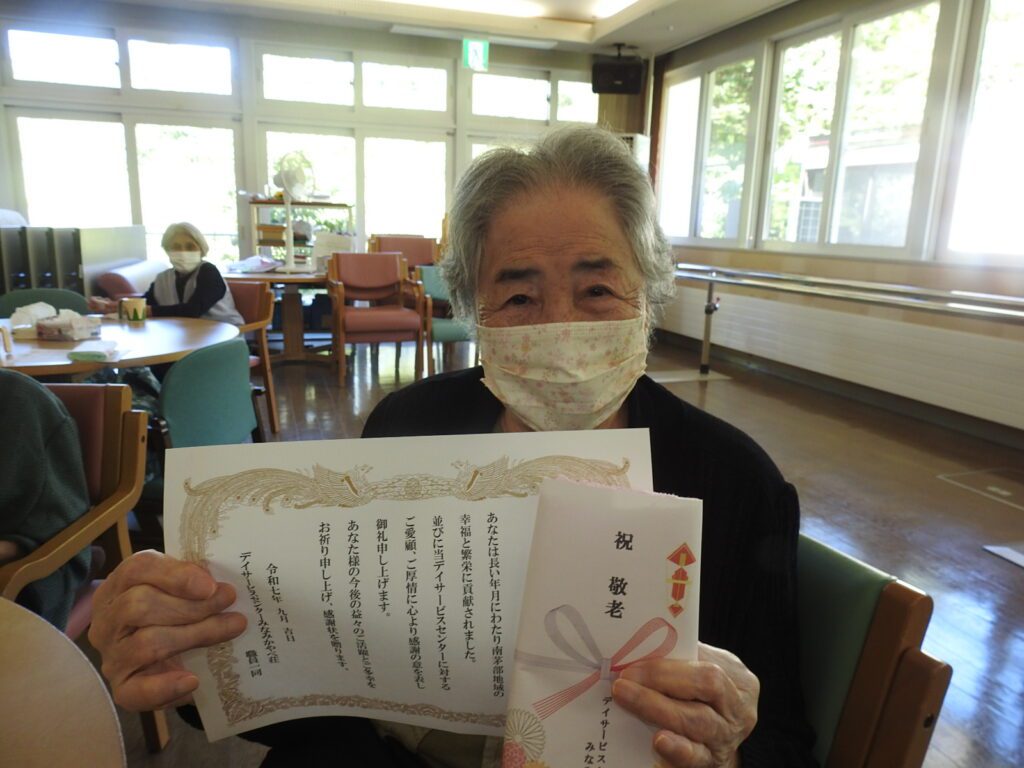 あなたは長い年月にわたり南茅部地域の
幸福と繁栄に貢献されました。
並びに当デイサービスセンターに対する
ご愛顧、ご厚情に心より感謝の意を表し
御礼申し上げます。
あなた様の今後の益々のご活躍とご多幸を
お祈り申し上げ、感謝状を贈ります。
令和七年 九月 吉日
デイサービスセンターみなみかやべ荘
職員一同
祝 敬老
デイサービス
みな